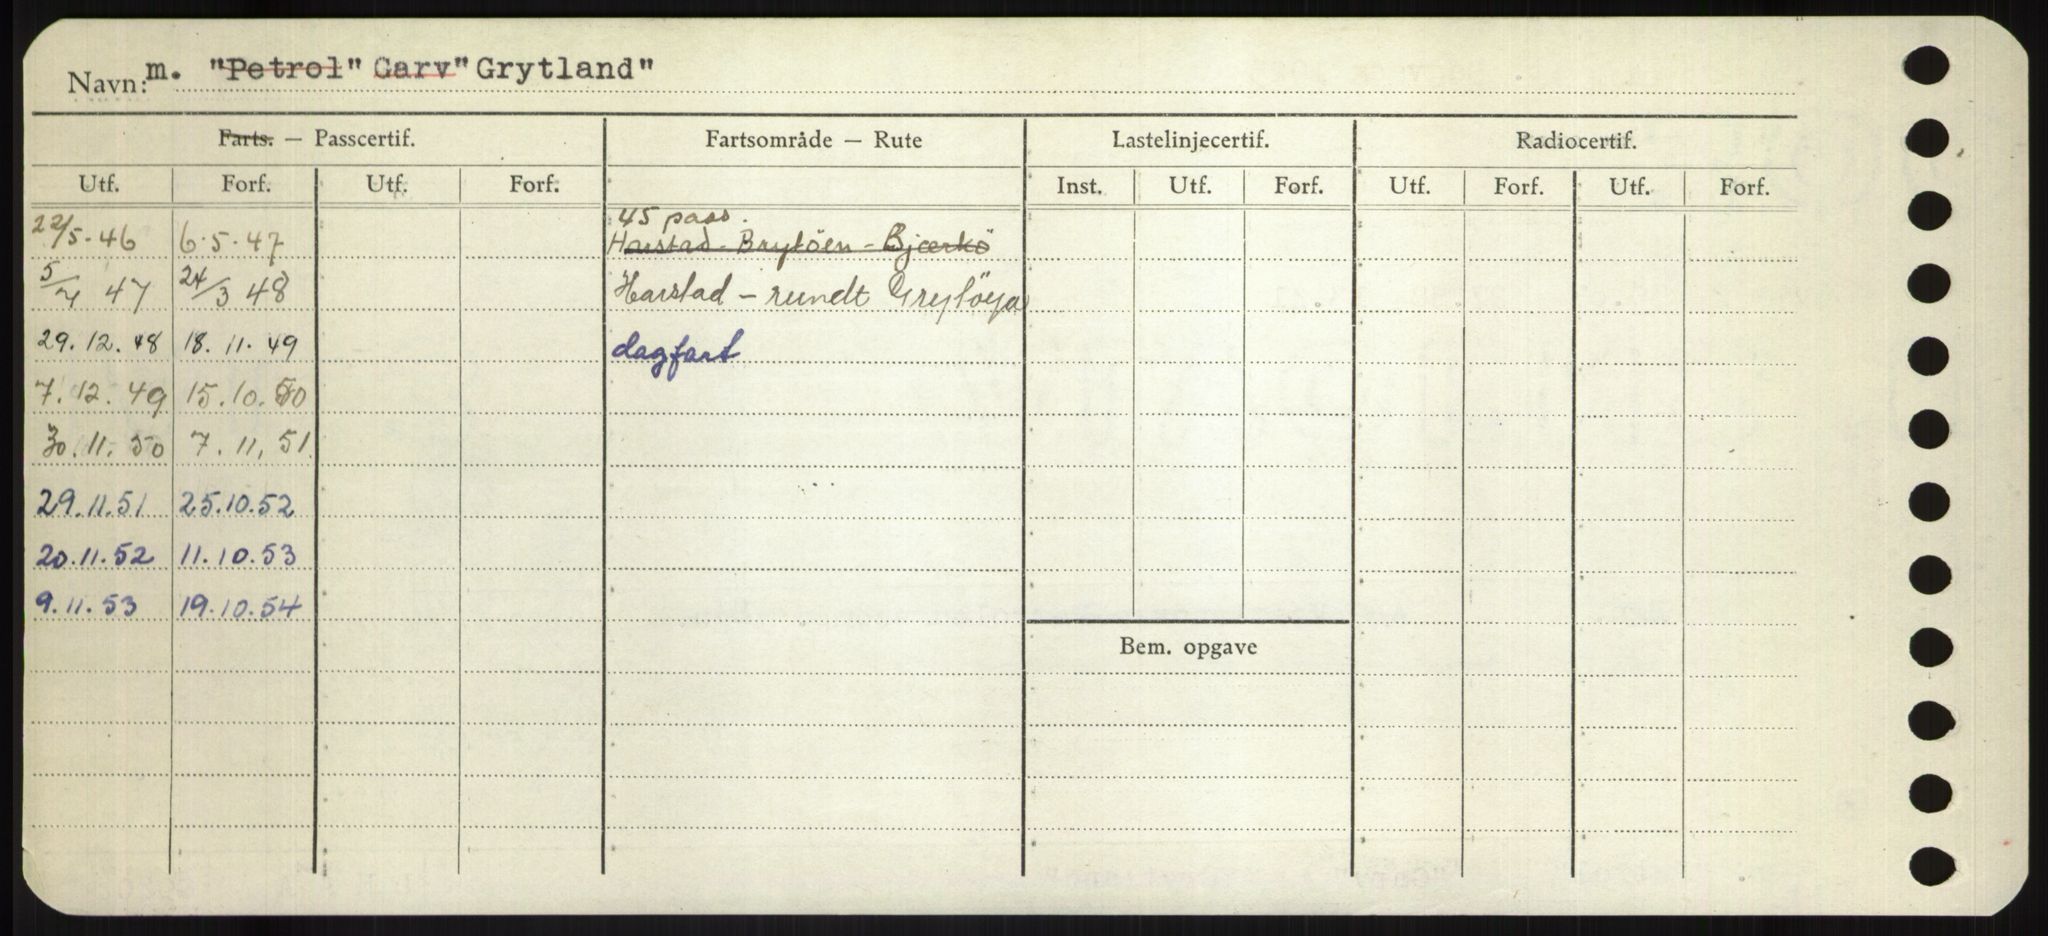 Navn: m. "Petrol" Garv "Grytland"
Farts. — Passcertif. Fartsområde — Rute Lastelinjecertif. Radiocertif.
Utf. Forf. Utf. Forf. Inst. Utf. Forf. Utf. Forf. Utf. Forf.
45 pass.
22/5-46 6.5.47 Harstad-Grytöen-Bjærkö
5/7 47 24/3 48 Harstad - rundt Grytöya
29.12.48 18.11.49 dagfart
7.12.49 15.10.50
30.11.50 7.11.51
29.11.51 25.10.52
20.11.52 11.10.53
9.11.53 19.10.54
Bem. opgave